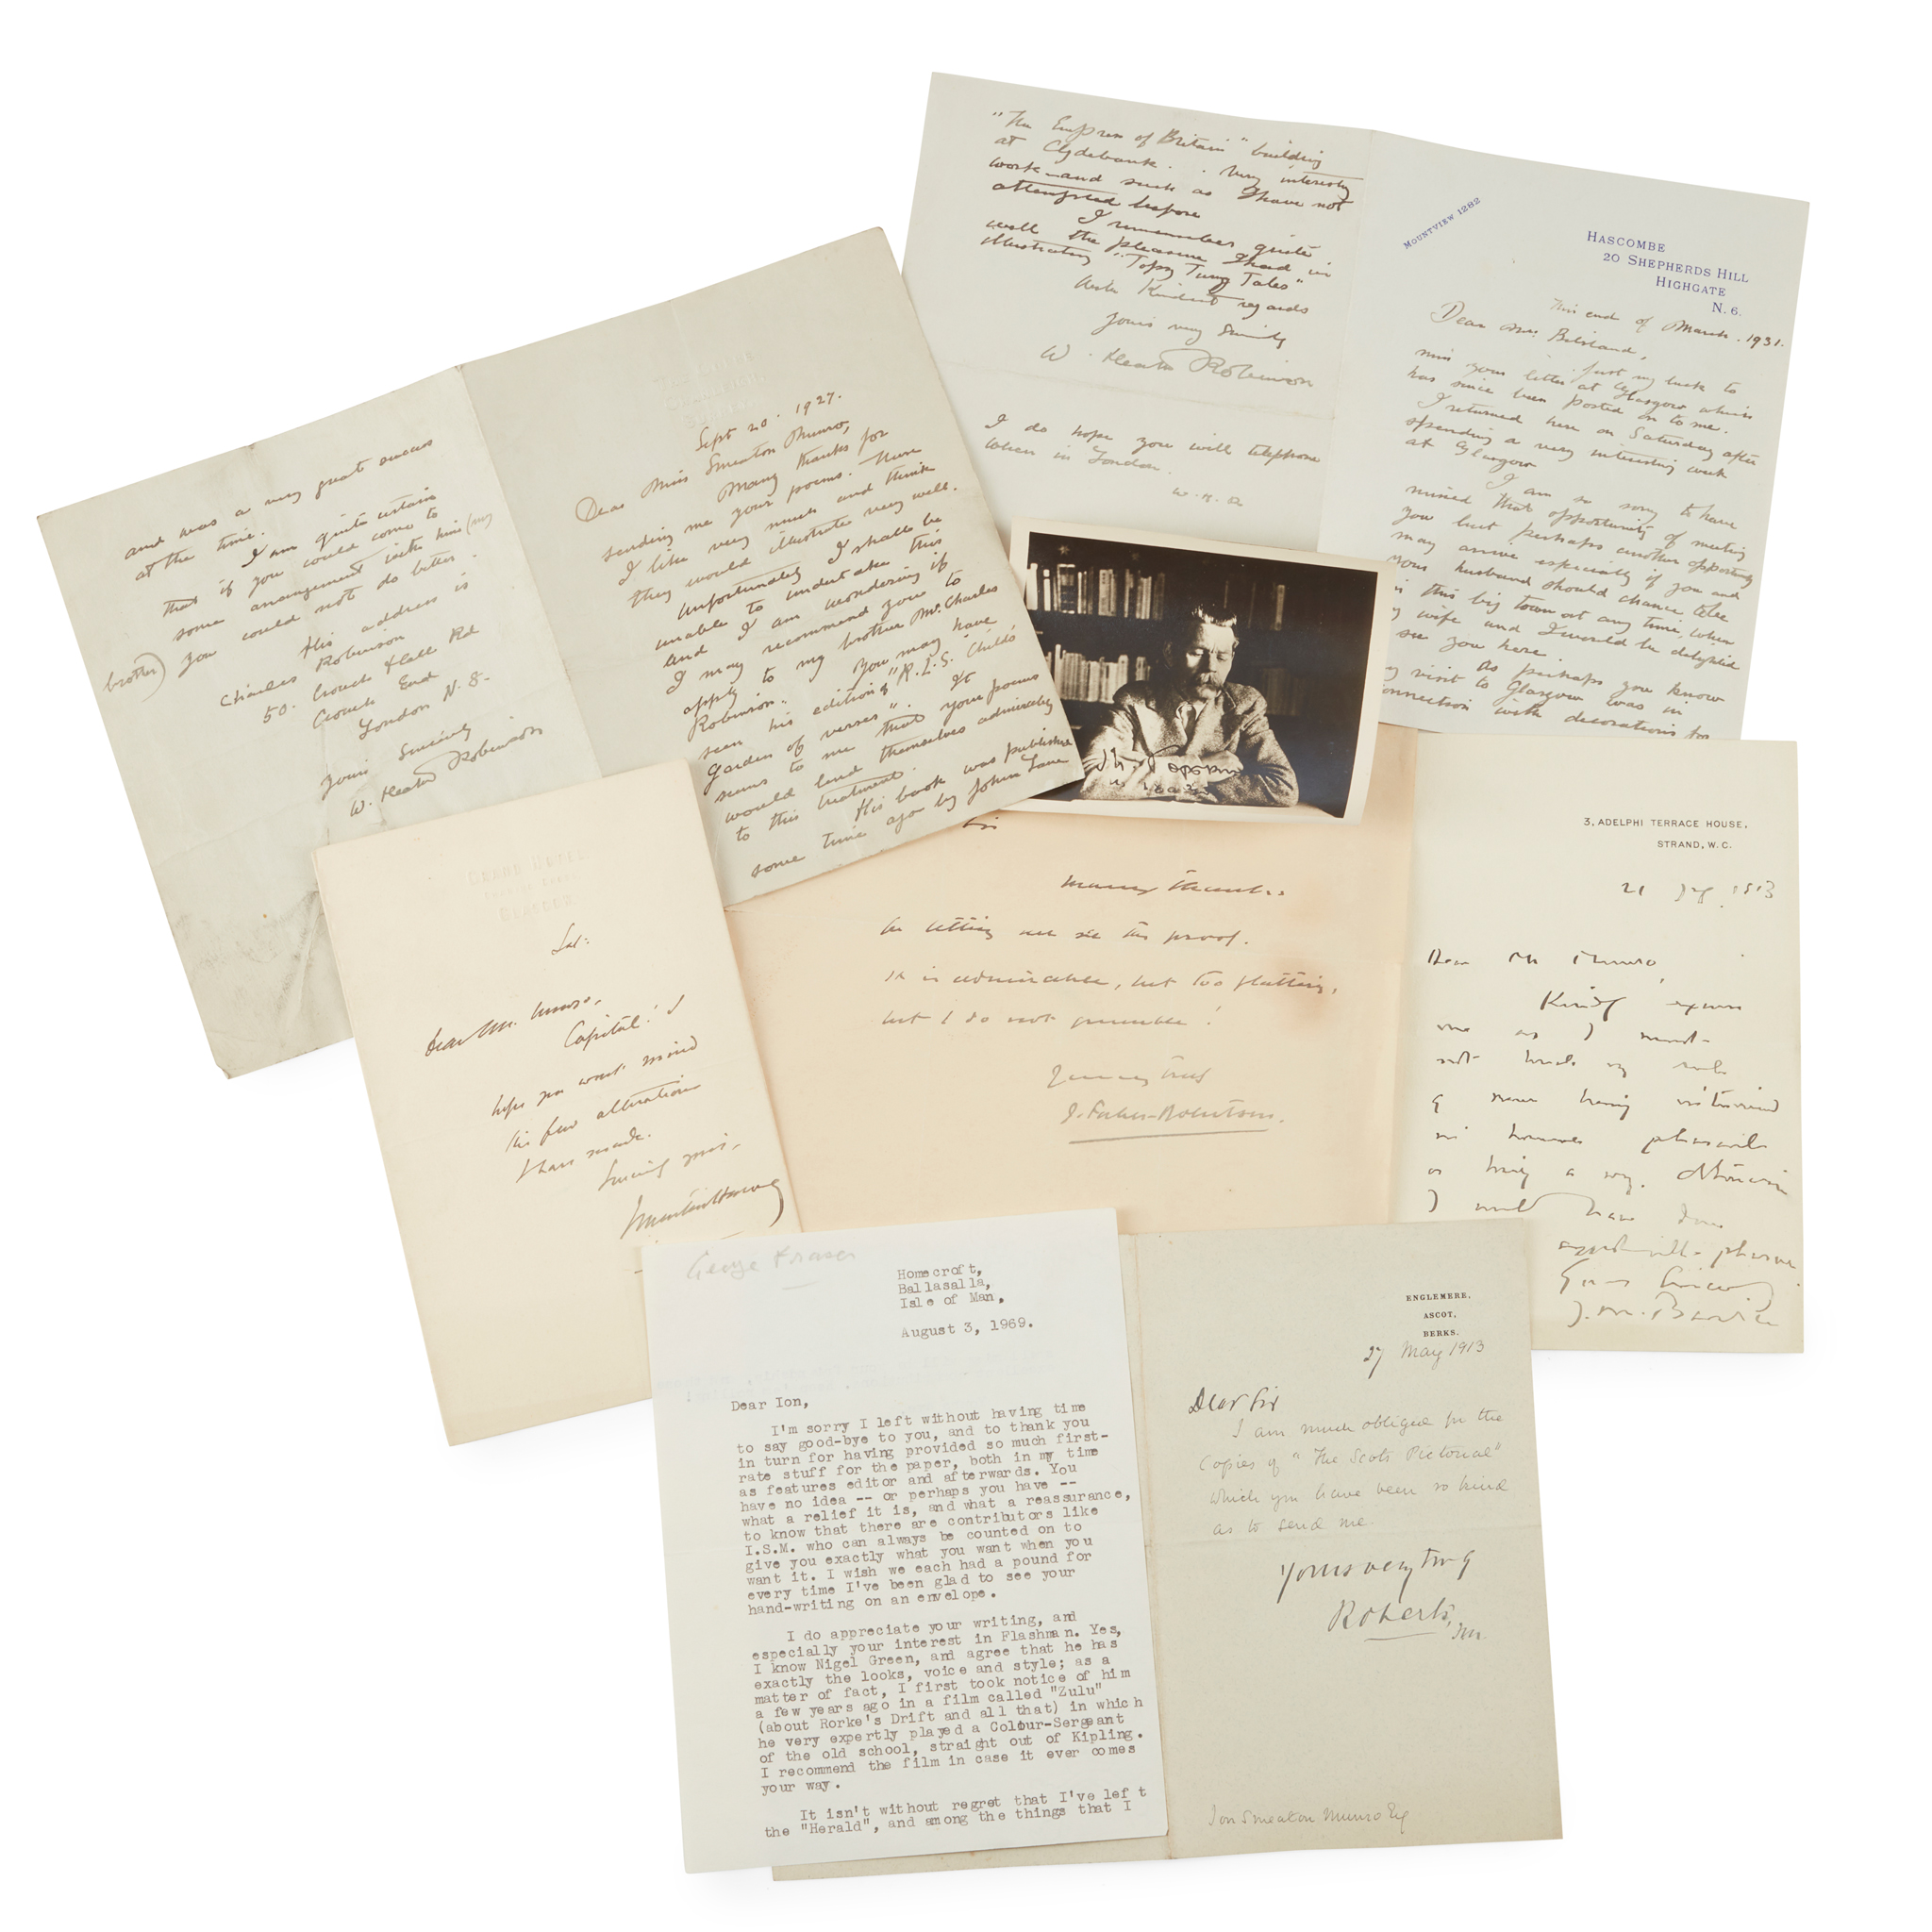 "The Empress of Britain" building
at Clydebank . . Very interesting
work – and such as I have not
attempted before
I remember quite
well the pleasure I had in
illustrating "Topsy Turvy Tales"
With Kindest regards
Yours very Sincerely
W. Heath Robinson
I do hope you will telephone
when in London.
W. H. R
MOUNTVIEW 1282
HASCOMBE
20 SHEPHERDS HILL
HIGHGATE
N. 6.
end of March. 1931.
Dear Mrs.
Just my luck to
miss your letter at Glasgow which
has since been posted on to me.
I returned here on Saturday after
spending a very interesting week
at Glasgow
I am so sorry to have
missed that opportunity of meeting
you but perhaps another opportunity
may arrive especially if you and
your husband should chance to be
in this big town at any time, when
my wife and I would be delighted
see you here.
As perhaps you know
my visit to Glasgow was in
connection with decorations for
and was a very great success
at the time.
I am quite certain
that if you could come to
some arrangement with him (my
brother) you could not do better.
His address is
Charles Robinson
50. Crouch Hall Rd
Crouch End
London N. 8.
Yours Sincerely
W. Heath Robinson
Sept 20. 1927.
Dear Miss Smeaton Munro,
Many thanks for
sending me your poems. These
I like very much and think
they would illustrate very well.
Unfortunately I shall be
unable to undertake this
and I am wondering if
I may recommend you to
apply to my brother Mr. Charles
Robinson. You may have
seen his edition of "R.L.S. Child's
Garden of verses". It
seems to me that your poems
would lend themselves admirably
to this treatment.
His book was published
some time ago by John Lane
GRAND HOTEL
GLASGOW
Sat:
Dear Mr. Munro,
Capital! I
hope you wont mind
the few alterations
I have made.
Many thanks
for letting me see the proof.
It is admirable, but too flattering,
but I do not grumble!
Yours truly
J. Forbes-Robertson.
3, ADELPHI TERRACE HOUSE,
STRAND, W. C.
21 1913
Dear Mr Munro,
Kindly excuse
me as I must
not break my rule
of never being interviewed
as being a
I would have done
J. M. Barrie
George Fraser
Homecroft,
Ballasalla,
Isle of Man,
August 3, 1969.
Dear Ion,
I'm sorry I left without having time
to say good-bye to you, and to thank you
in turn for having provided so much first-
rate stuff for the paper, both in my time
as features editor and afterwards. You
have no idea -- or perhaps you have --
what a relief it is, and what a reassurance,
to know that there are contributors like
I.S.M. who can always be counted on to
give you exactly what you want when you
want it. I wish we each had a pound for
every time I've been glad to see your
hand-writing on an envelope.
I do appreciate your writing, and
especially your interest in Flashman. Yes,
I know Nigel Green, and agree that he has
exactly the looks, voice and style; as a
matter of fact, I first took notice of him
a few years ago in a film called "Zulu"
(about Rorke's Drift and all that) in which
he very expertly played a Colour-Sergeant
of the old school, straight out of Kipling.
I recommend the film in case it ever comes
your way.
It isn't without regret that I've left
the "Herald", and among the things that I
ENGLEMERE,
ASCOT,
BERKS.
27 May 1913
Dear Sir
I am much obliged for the
Copies of "The Scots Pictorial"
which you have been so kind
as to send me.
Yours very truly
Roberts,
Ion Smeaton Munro Esq